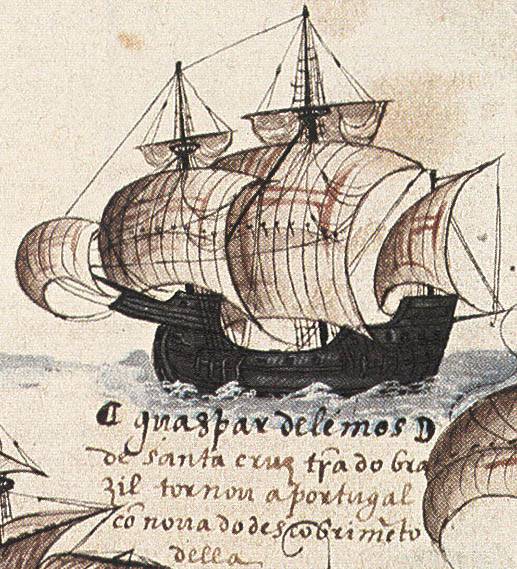 C guaspar de lemos D
de santa cruz tr̃a do bra
zil tornou a portugal
cõ noua do descobrimẽto
della